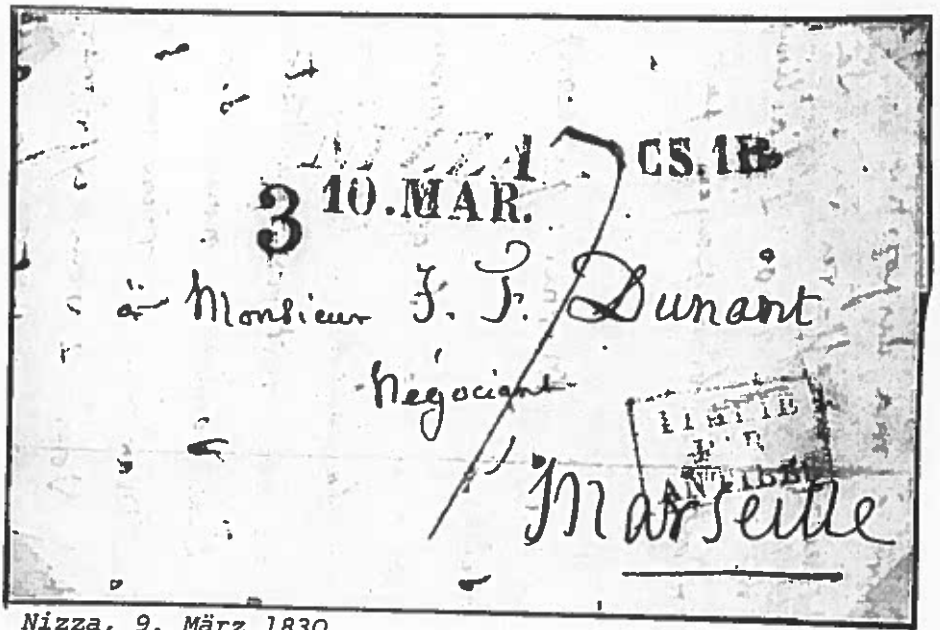 CS.1R
3 10.MAR.
à Monsieur J. P. Dunant
Négociant
Marseille
Nizza, 9. März 1830